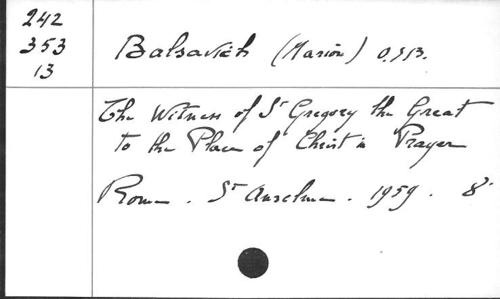 242
353
13
Balsavich (Marion) O.S.B.
The Witness of St Gregory the Great
to the Place of Christ in Prayer
Rome. St Anselme. 1959. 8°